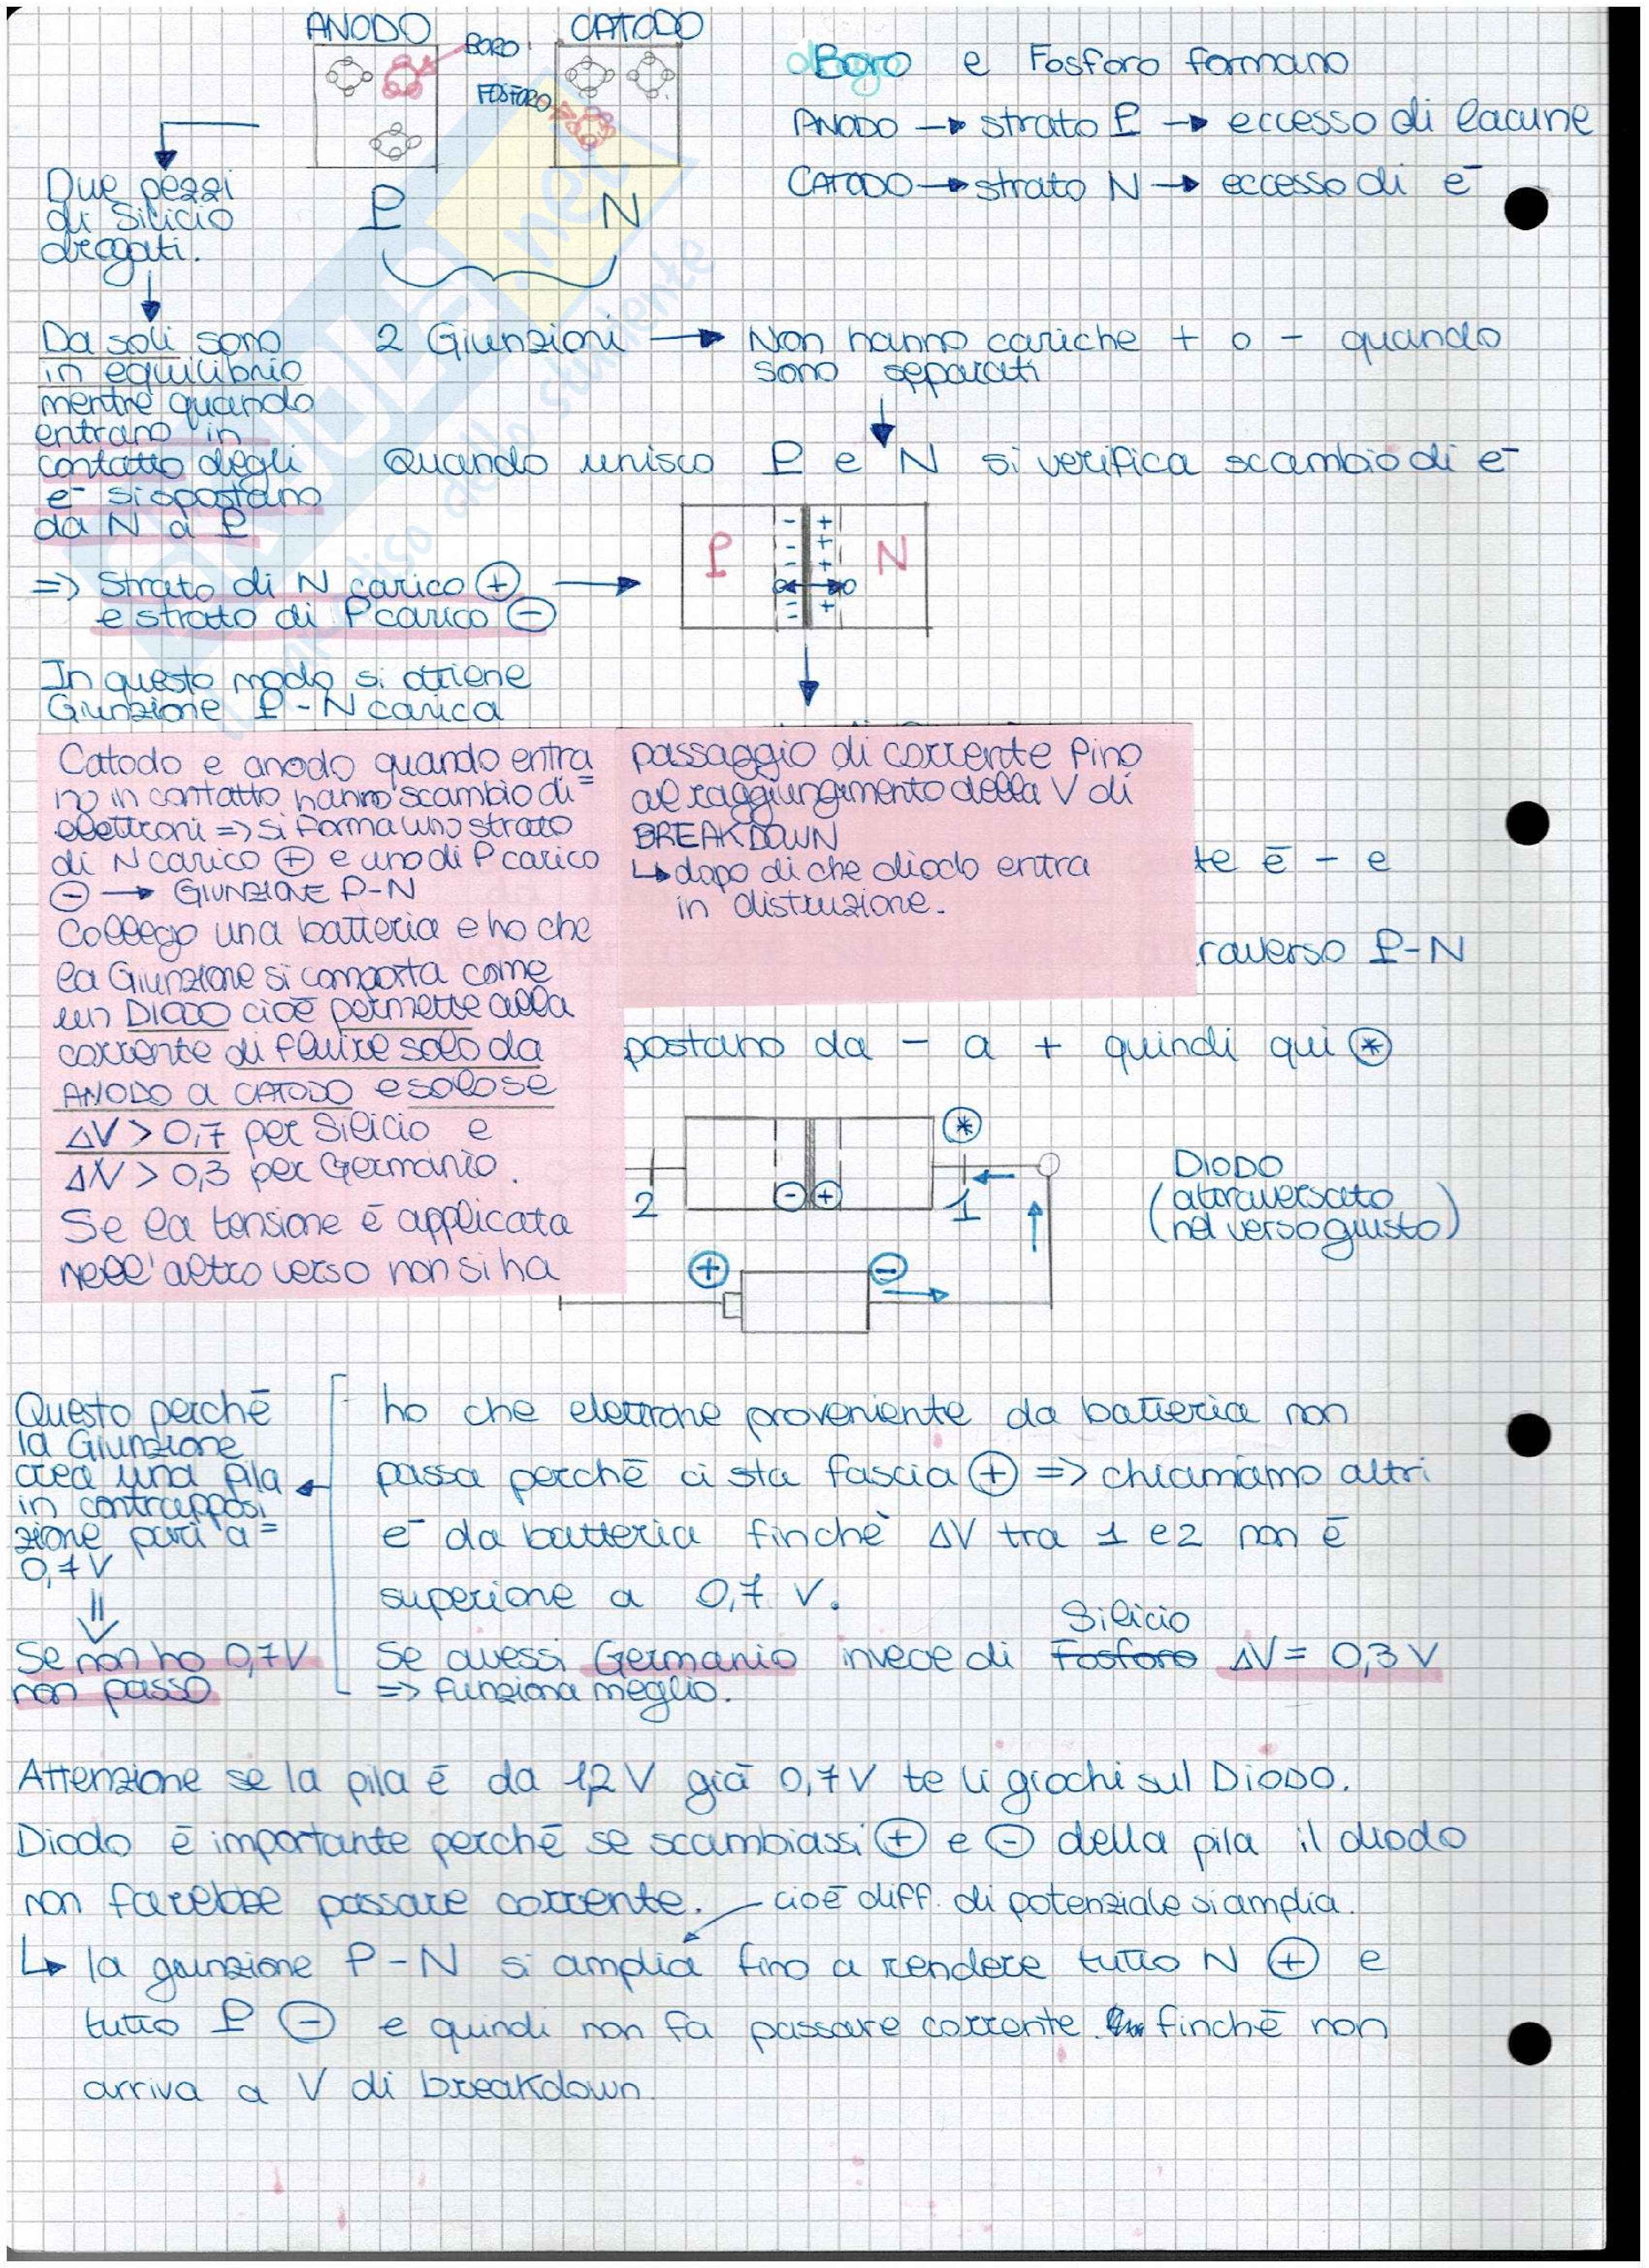 ANODO
CATODO
BORO
FOSFORO
Boro e Fosforo formano
ANODO → strato P → eccesso di lacune
CATODO → strato N → eccesso di e⁻
Due pezzi
di Silicio
drogati.
P N
Da soli sono
in equilibrio
mentre quando
entrano in
contatto degli
e⁻ si spostano
da N a P
2 Giunzioni → Non hanno cariche + o - quando
sono separati
Quando unisco P e N si verifica scambio di e⁻
P - + N
- +
- +
- +
- +
=> Strato di N carico ⊕ →
e strato di P carico ⊖
In questo modo si ottiene
Giunzione P-N carica
Catodo e anodo quando entra
no in contatto hanno scambio di=
elettroni => si forma uno strato
di N carico ⊕ e uno di P carico
⊖ → GIUNZIONE P-N
Collego una batteria e ho che
la Giunzione si comporta come
un DIODO cioè permette alla
corrente di fluire solo da
ANODO a CATODO e solo se
ΔV > 0,7 per Silicio e
ΔV > 0,3 per Germanio.
Se la tensione è applicata
nell'altro verso non si ha
passaggio di corrente fino
al raggiungimento della V di
BREAKDOWN
↳ dopo di che diodo entra
in distruzione.
te è - e
raverso P-N
postano da - a + quindi qui ⊛
⊛
2 ⊖ ⊕ 1
⊕ ⊖
DIODO
(attraversato
nel verso giusto)
Questo perché
la Giunzione
crea una pila
in contrapposi
zione pari a=
0,7V
⇓
Se non ho 0,7V
non passo
ho che elettrone proveniente da batteria non
passa perché ci sta fascia ⊕ => chiamiamo altri
e⁻ da batteria finchè ΔV tra 1 e 2 non è
superione a 0,7 V.
Silicio
Se avessi Germanio invece di Fosforo ΔV = 0,3 V
=> funziona meglio.
Attenzione se la pila è da 1,2 V già 0,7V te li giochi sul DIODO.
Diodo è importante perché se scambiassi ⊕ e ⊖ della pila il diodo
non farebbe passare corrente.
cioè diff. di potenziale si amplia.
↳ la giunzione P-N si amplia fino a rendere tutto N ⊕ e
tutto P ⊖ e quindi non fa passare corrente finchè non
arriva a V di breakdown.